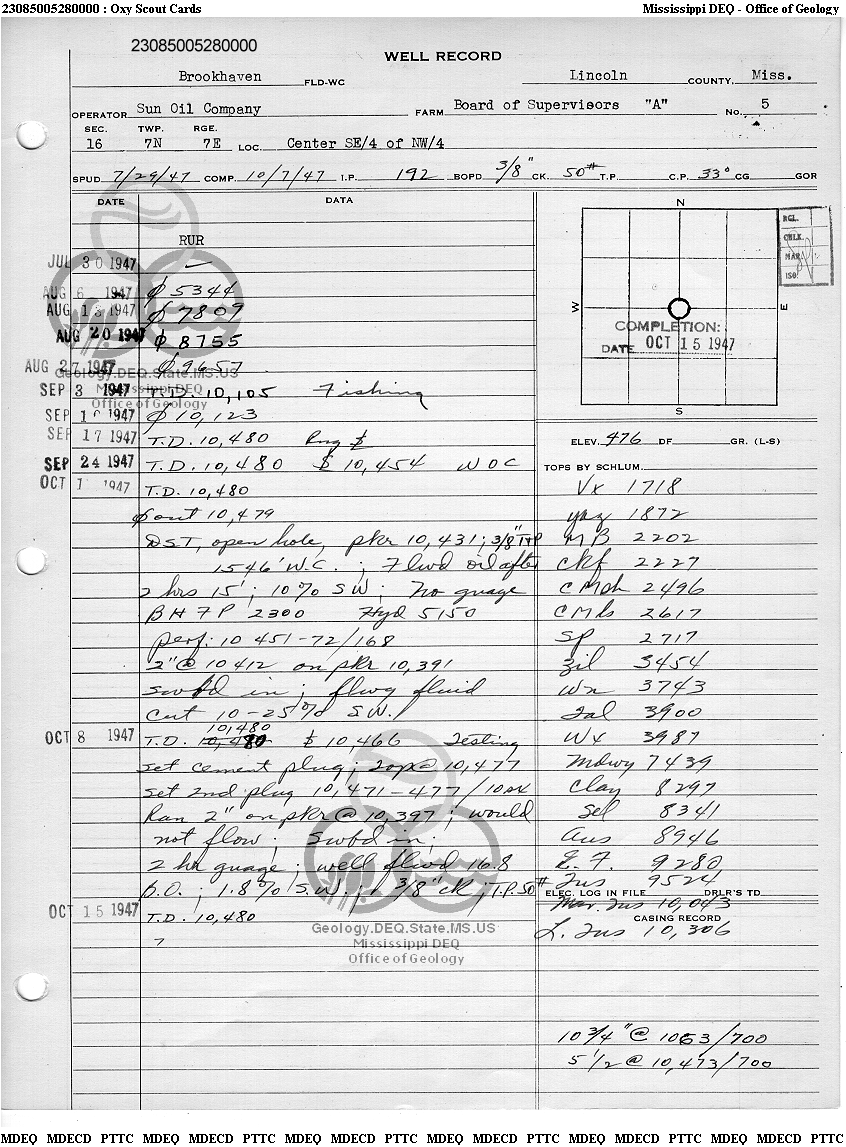 23085005280000 : Oxy Scout Cards
Mississippi DEQ - Office of Geology
23085005280000
WELL RECORD
Brookhaven FLD-WC Lincoln COUNTY, Miss.
OPERATOR Sun Oil Company FARM Board of Supervisors "A" No. 5
SEC. TWP. RGE.
16 7N 7E LOC. Center SE/4 of NW/4
SPUD 7/29/47 COMP. 10/7/47 I.P. 192 BOPD 3/8" CK. 50# T.P. C.P. 33° CG GOR
DATE DATA
RUR
JUL 30 1947
AUG 6 1947 ϕ 5344
AUG 13 1947 ϕ 7809
AUG 20 1947 ϕ 8755
AUG 27 1947 ϕ 9657
SEP 3 1947 T.D. 10,105 Fishing
SEP 10 1947 ϕ 10,123
SEP 17 1947 T.D. 10,480 Rng $
SEP 24 1947 T.D. 10,480 $ 10,454 WOC
OCT 1 1947 T.D. 10,480
ϕ out 10,479
DST, open hole, pkr 10,431; 3/8"
1546' W.C.; Flwd oil after
2 hrs 15'; 10% SW; No guage
BHFP 2300 Hyd 5150
perf: 10 451-72/168
2" @ 10 412 on pkr 10,391
Swbd in; flwg fluid
Cut 10-25% S.W.
OCT 8 1947 T.D. 10,480 10,480 $ 10,466 Testing
Set cement plug; Top @ 10,477
Set 2nd plug 10,471-477/10sx
Ran 2" on pkr @ 10,397; would
not flow; Swbd in;
2 hr guage; well flwd 16.8
B.O.; 1.8% S.W.; 3/8" ck; T.P. 50#
OCT 15 1947 T.D. 10,480
7
N
W
E
S
RGL.
CHLK.
MAP
ISO.
COMPLETION:
DATE OCT 15 1947
ELEV. 476 DF GR. (L-S)
TOPS BY SCHLUM.
Vx 1718
yaz 1872
MB 2202
Ckf 2227
CMdn 2496
CMks 2617
Sp 2717
Zil 3454
Wn 3743
Tal 3900
Wx 3987
Mdwy 7439
Clay 8297
Sel 8341
Aus 8946
E.F. 9280
Tus 9524
ELEC. LOG IN FILE DRLR'S TD
Mar. Tus 10,043
CASING RECORD
L. Tus 10,306
10 3/4" @ 1053/700
5 1/2 @ 10,473/700
Geology.DEQ.State.MS.US
Mississippi DEQ
Office of Geology
Geology.DEQ.State.MS.US
Mississippi DEQ
Office of Geology
MDEQ MDECD PTTC MDEQ MDECD PTTC MDEQ MDECD PTTC MDEQ MDECD PTTC MDEQ MDECD PTTC MDEQ MDECD PTTC